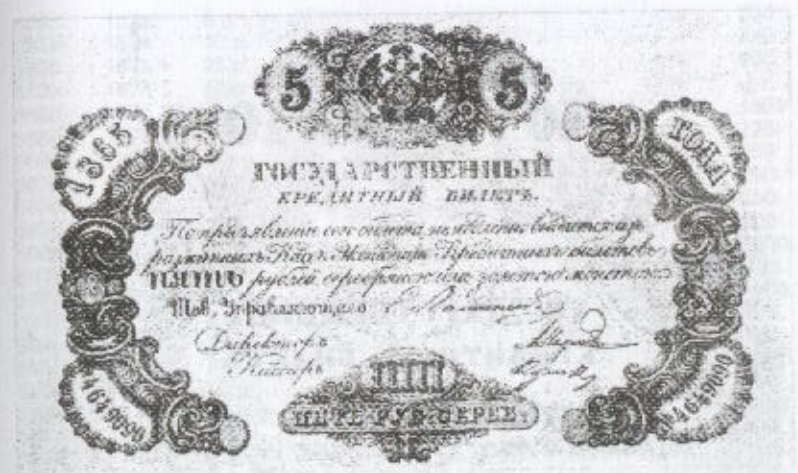 5 5
1865 ГОДА
ГОСУДАРСТВЕННЫЙ
КРЕДИТНЫЙ БИЛЕТЪ.
По предъявленіи сего билета, немедленно выдается изъ
размѣнныхъ Кассъ Кредитныхъ билетовъ
ПЯТЬ рублей серебряною или золотою монетою
Тов. Управляющаго
Директоръ
Кассиръ
ПЯТЬ РУБ. СЕРЕБ.
4649090 4649090